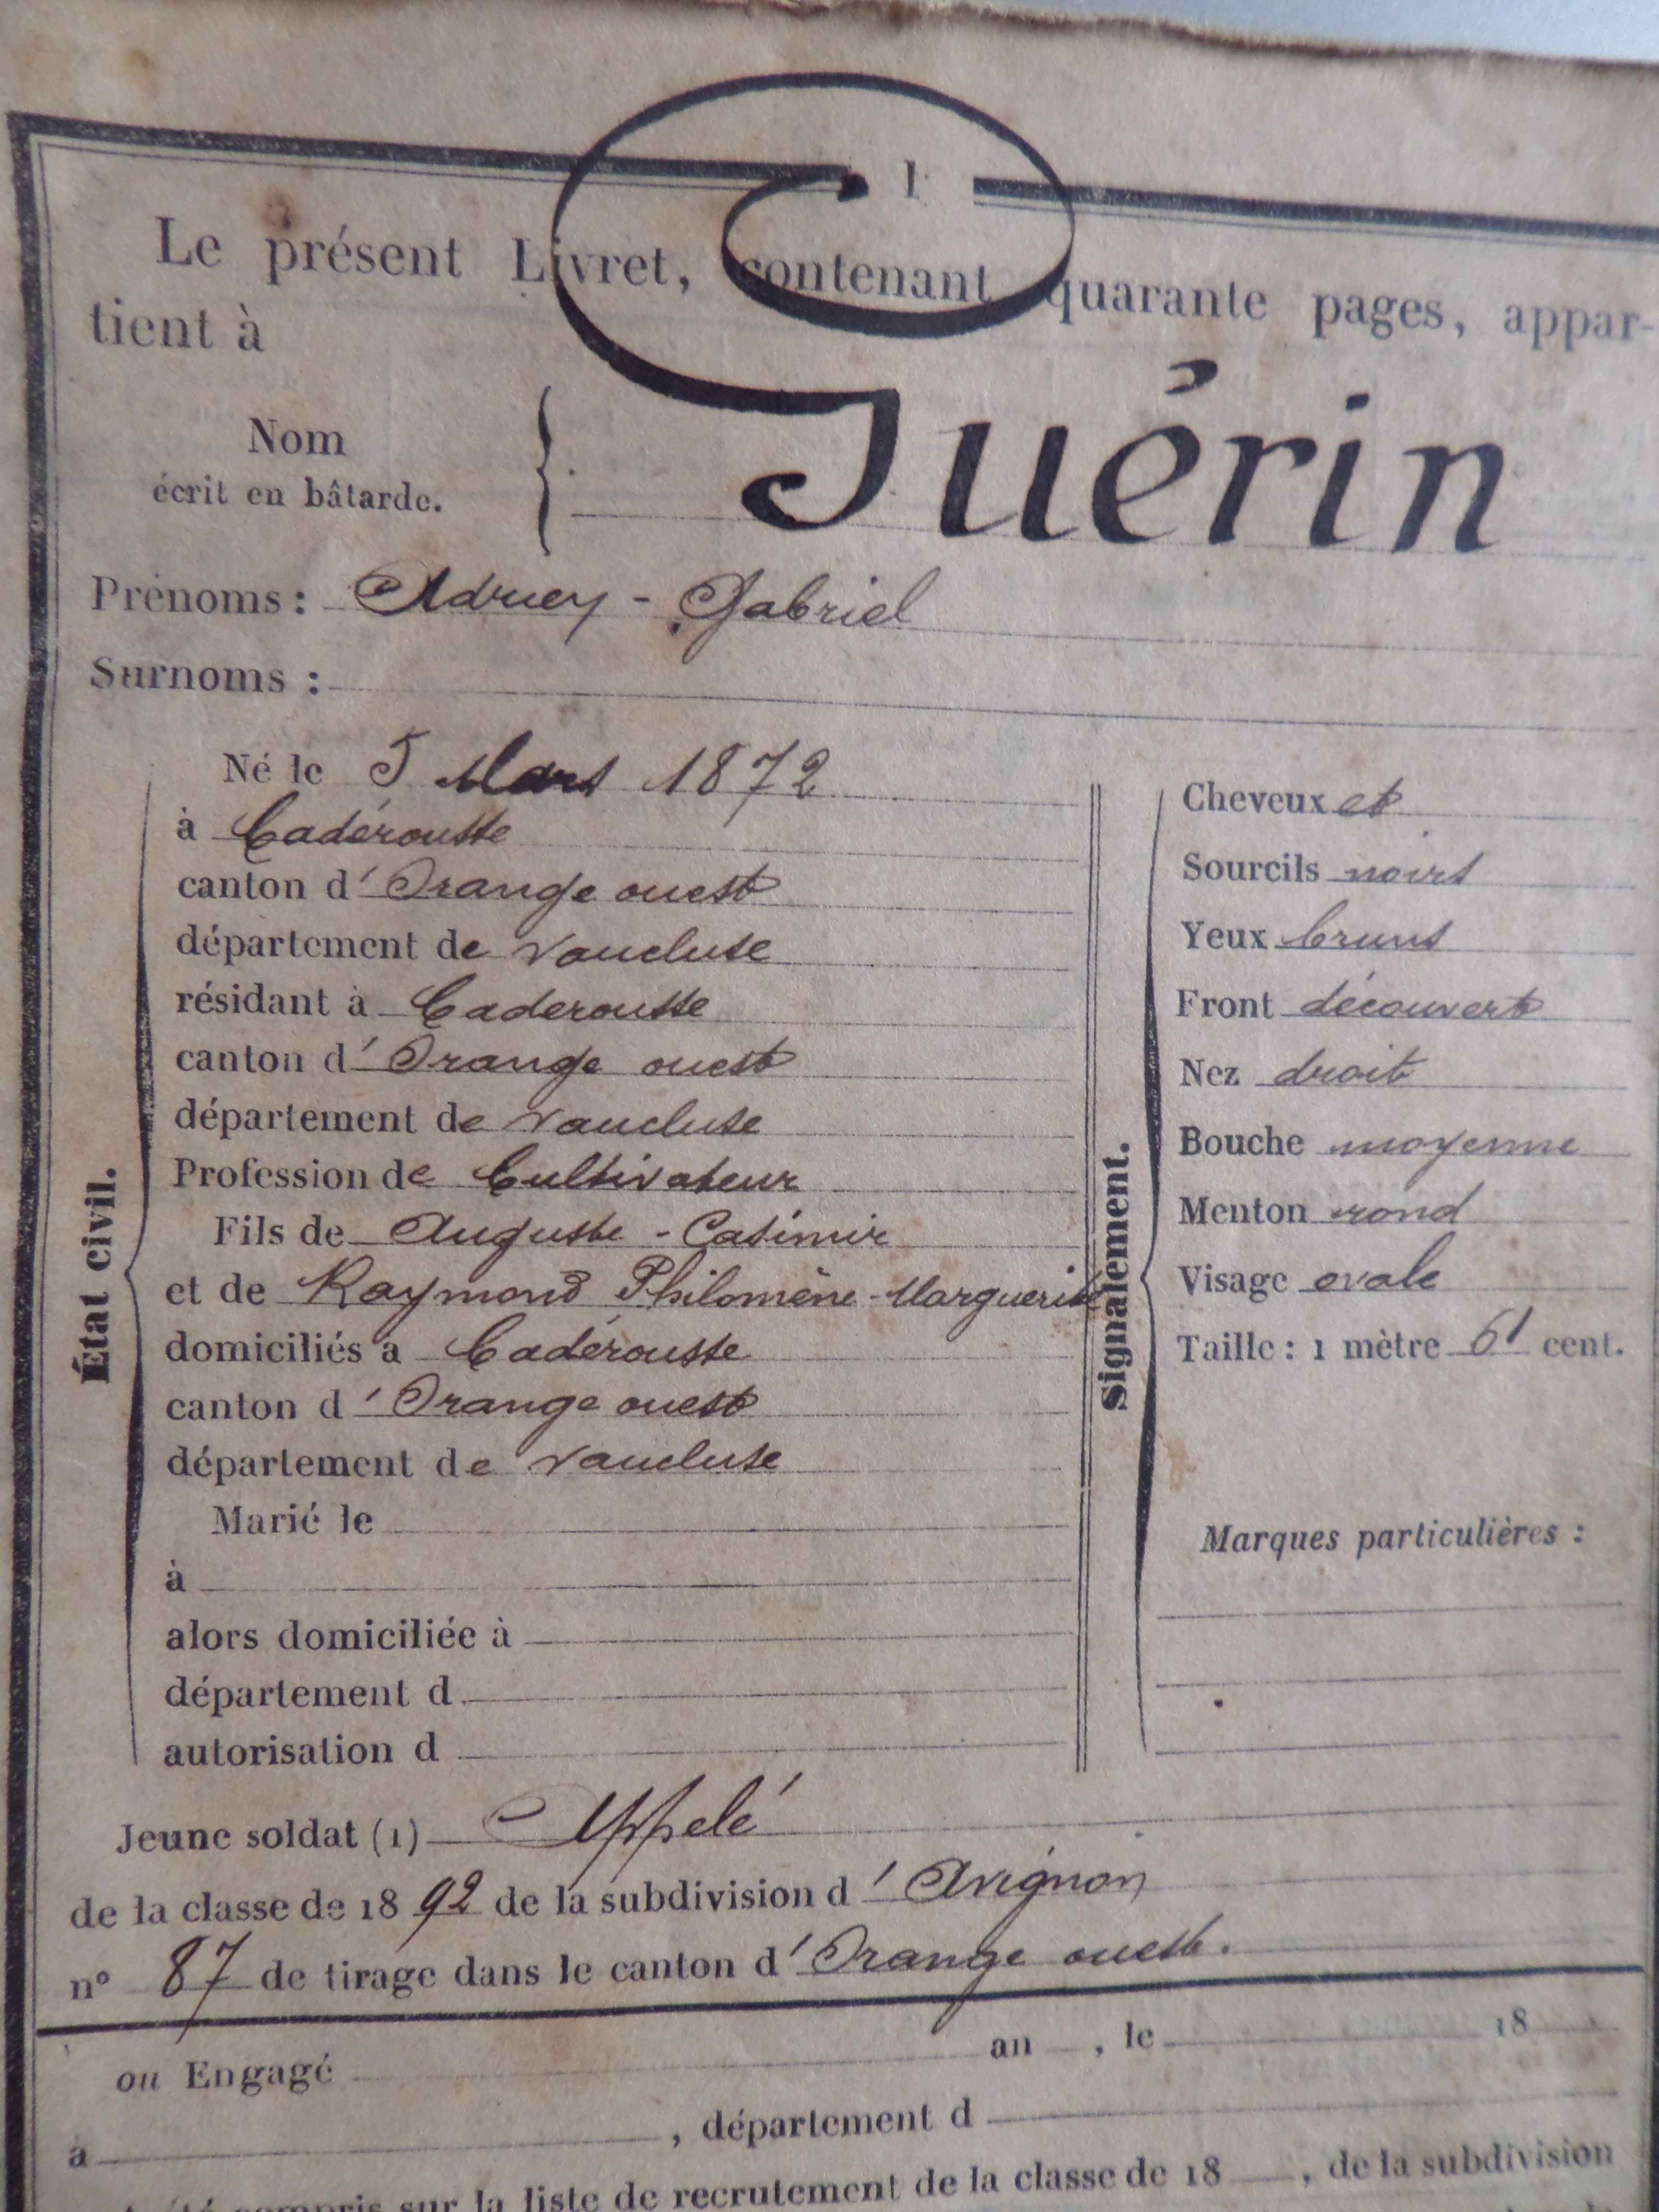 1
Le présent Livret, contenant quarante pages, appar-
tient à
Nom
écrit en bâtarde.
Guérin
Prénoms : Adruey - Gabriel
Surnoms :
État civil.
Né le 5 Mars 1872
à Cadérousse
canton d'Orange ouest
département de Vaucluse
résidant à Caderousse
canton d'Orange ouest
département de Vaucluse
Profession de Cultivateur
Fils de Auguste - Casimir
et de Raymond Philomène - Marguerite
domiciliés à Cadérousse
canton d'Orange ouest
département de Vaucluse
Marié le
à
alors domiciliée à
département d
autorisation d
Signalement.
Cheveux et
Sourcils noirs
Yeux bruns
Front découvert
Nez droit
Bouche moyenne
Menton rond
Visage ovale
Taille : 1 mètre 61 cent.
Marques particulières :
Jeune soldat (1) Appelé
de la classe de 1892 de la subdivision d'Avignon
n° 87 de tirage dans le canton d'Orange ouest.
ou Engagé an , le 18
à , département d
compris sur la liste de recrutement de la classe de 18 , de la subdivision